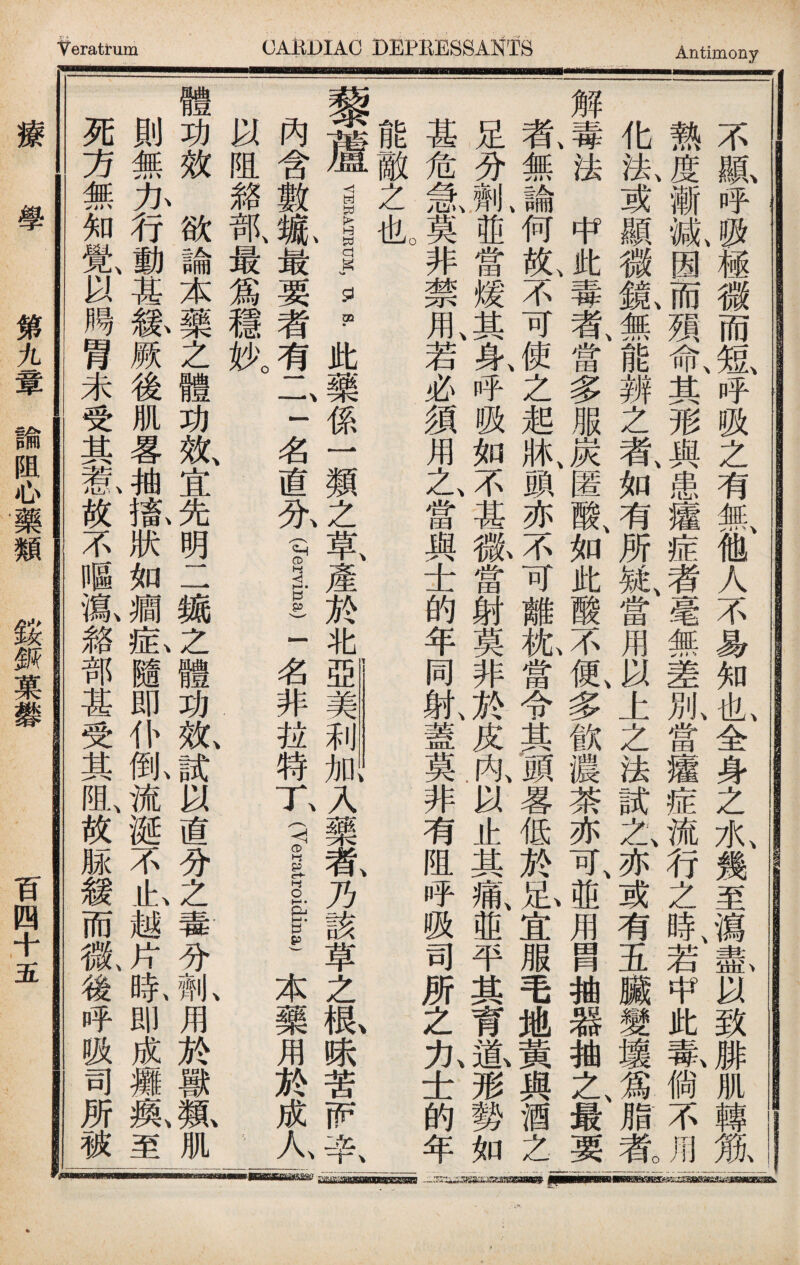 Veratrum
CARDIAC DEPRESSANTS
Antimony
不顯、呼吸極微而短、呼吸之有無、他人不易知也、全身之水、幾至瀉盡、以致腓肌轉筋、
熱度漸減、因而殞命、其形與患癨症者毫無差別、當癨症流行之時、若中此毒、倘不用
化法、或顯微鏡、無能辨之者、如有所疑、當用以上之法試之、亦或有五臟變壞爲脂者。
解毒法 中此毒者、當多服炭匿酸、如此酸不便、多飮濃茶亦可、並用胃抽器抽之、最要
者、無論何故、不可使之起牀、頭亦不可離枕、當令其頭畧低於足、宜服毛地黃與酒之
足分劑、並當煖其身、呼吸如不甚微、當射莫非於皮內、以止其痛、並平其育道、形勢如
甚危急、莫非禁用、若必須用之、當與士的年同射、蓋莫非有阻呼吸司所之力、士的年
能敵之也。
藜蘆 VERATRUM, U. S. 此藥係一類之草、產於北亞美利加、入藥者、乃該草之根、味苦而辛、
內含數𨫼、最要者有二、一名直分、(Jervina) 一名非拉特丁、(Veratroidina) 本藥用於成人、
以阻絡部、最爲穩妙。
體功效 欲論本藥之體功效、宜先明二𨫼之體功效、試以直分之毒分劑、用於獸類、肌
則無力、行動甚緩、厥後肌畧抽搐、狀如癎症、隨即仆倒、流涎不止、越片時、即成癱瘓、至
死方無知覺、以腸胃未受其惹、故不嘔瀉、絡部甚受其阻、故脉緩而微、後呼吸司所被
療學 第九章 論阻心藥類 銨鉀菓礬 百四十五